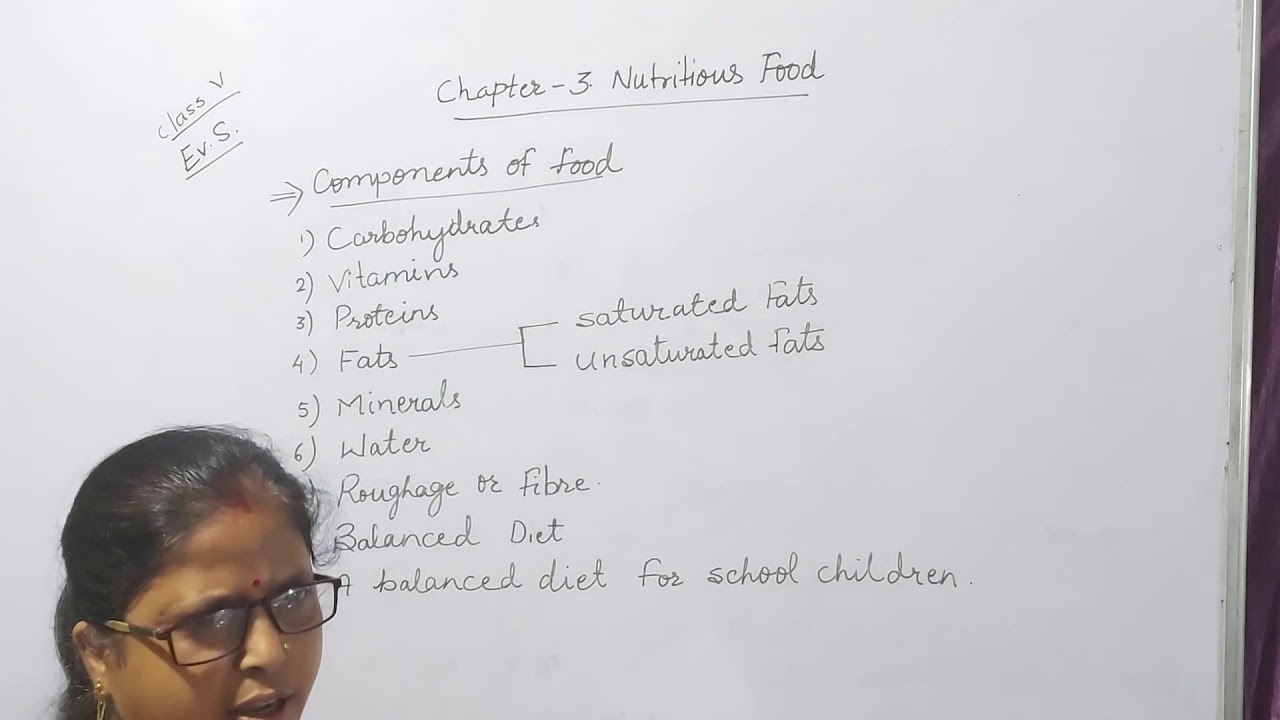 Class V
Ev.S.
Chapter-3. Nutritious Food
⇒ Components of food
1) Carbohydrates
2) Vitamins
3) Proteins
4) Fats
saturated Fats
unsaturated fats
5) Minerals
6) Water
Roughage or fibre.
Balanced Diet
A balanced diet for school children.